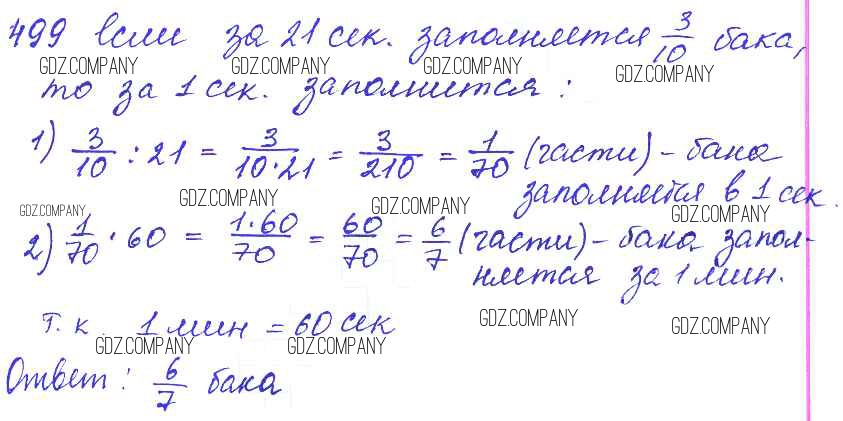 499 Если за 21 сек. заполняется 3/10 бака,
GDZ.COMPANY GDZ.COMPANY GDZ.COMPANY GDZ.COMPANY
то за 1 сек. заполнится:
1) 3/10 : 21 = 3/10·21 = 3/210 = 1/70 (части) - бака
заполняется в 1 сек.
GDZ.COMPANY GDZ.COMPANY GDZ.COMPANY GDZ.COMPANY
2) 1/70 · 60 = 1·60/70 = 60/70 = 6/7 (части) - бака запол-
няется за 1 мин.
Т. к. 1 мин = 60 сек
GDZ.COMPANY GDZ.COMPANY
GDZ.COMPANY GDZ.COMPANY
Ответ: 6/7 бака